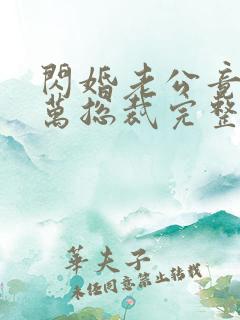 閃婚老公竟
萬總裁完整
華夫子
未经同意禁止转载